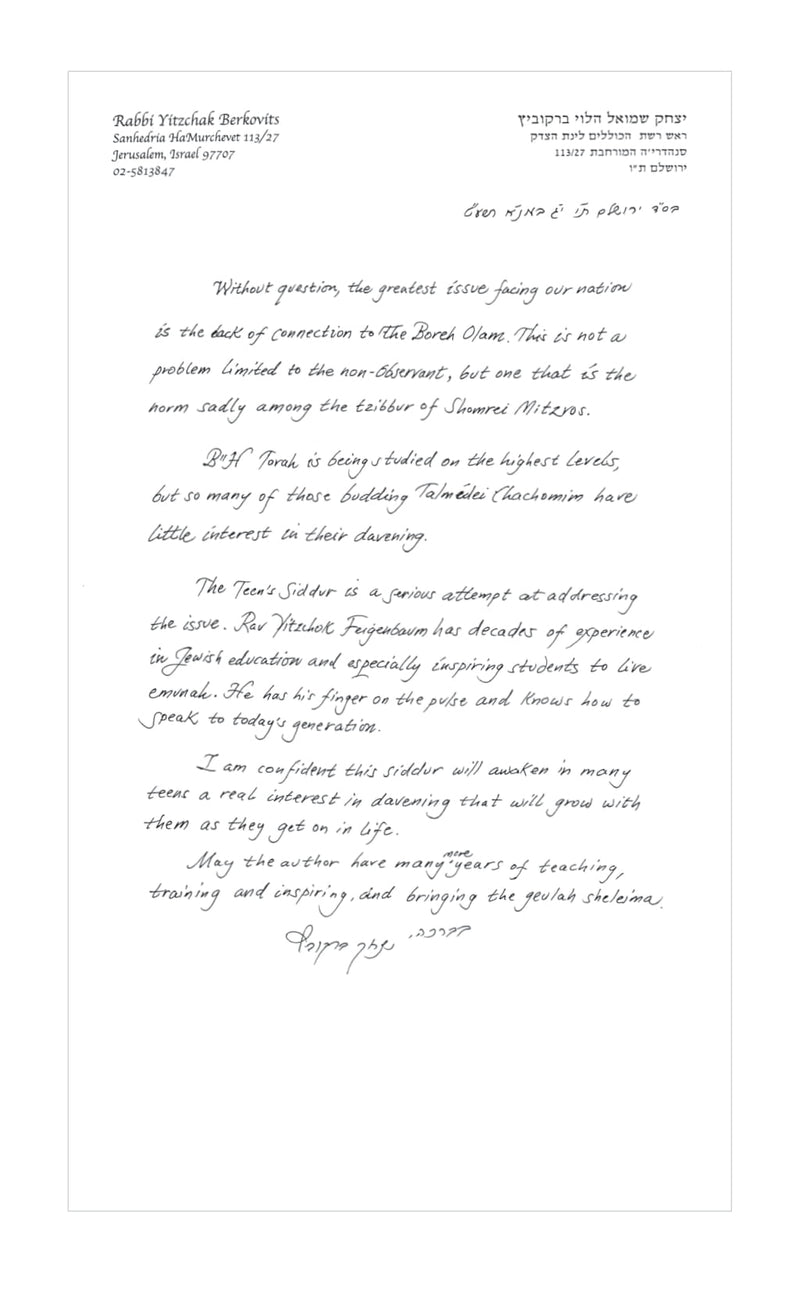 Rabbi Yitzchak Berkovits
Sanhedria HaMurchevet 113/27
Jerusalem, Israel 97707
02-5813847
יצחק שמואל הלוי ברקוביץ
ראש רשת הכוללים לינת הצדק
סנהדרי׳ה המורחבת 113/27
ירושלם ת״ו
בס״ד ירושלם ת״ו י״ג במנ״א תשע״ט
Without question, the greatest issue facing our nation
is the lack of connection to the Boreh Olam. This is not a
problem limited to the non-Observant, but one that is the
norm sadly among the tzibbur of Shomrei Mitzvos.
B"H Torah is being studied on the highest levels,
but so many of those budding Talmedei Chachomim have
little interest in their davening.
The Teen's Siddur is a serious attempt at addressing
the issue. Rav Yitzchok Feigenbaum has decades of experience
in Jewish education and especially inspiring students to live
emunah. He has his finger on the pulse and knows how to
speak to today's generation.
I am confident this siddur will awaken in many
teens a real interest in davening that will grow with
them as they get on in life.
May the author have many more years of teaching,
training and inspiring, and bringing the geulah sheleima.
בברכה,
יצחק ברקוביץ